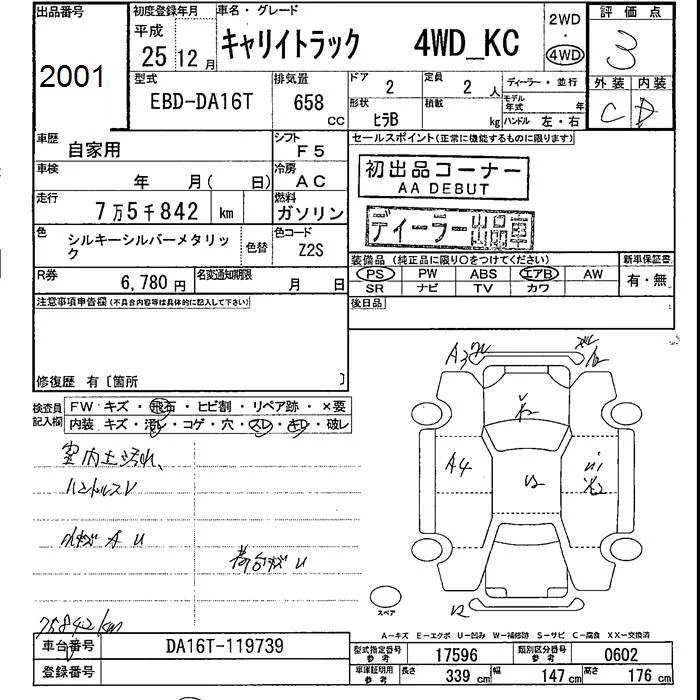 出品番号
2001
初度登録年月
平成
25 12 月
車名・グレード
キャリイトラック 4WD_KC
2WD
・
4WD
評価点
3
外装 内装
C D
型式
EBD-DA16T
排気量
658
CC
ドア
2
定員
2 人
形状
ヒラB
積載
kg
ディーラー・並行
モデル年式 年
ハンドル 左・右
車歴
自家用
シフト
F5
車検
年 月( 日)
冷房
AC
走行
7万5千842 km
燃料
ガソリン
色
シルキーシルバーメタリック
色替
色コード
Z2S
R券
6,780 円
名変通知期限
月 日
セールスポイント(正常に機能するものに限ります)
初出品コーナー
AA DEBUT
ディーラー出品車
装備品 (純正品に限り○をつけてください)
PS PW ABS エアB AW
SR ナビ TV カワ
新車保証書
有・無
後日品
注意事項申告欄(不具合内容等は具体的に記入して下さい)
修復歴 有〔箇所 〕
検査員記入欄
FW キズ・飛石・ヒビ割・リペア跡・×要
内装 キズ・汚レ・コゲ・穴・スレ・キレ・破レ
室内土汚れ、
ハンドルスレ
A U
荷台 U
75842km
A3
A4
スペア
A-キズ E-エクボ U-凹み W-補修跡 S-サビ C-腐食 XX-交換済
車台番号
DA16T-119739
登録番号
型式指定番号
参考
17596
類別区分番号
参考
0602
車庫証明用
参考
長さ
339 cm
幅
147 cm
高さ
176 cm